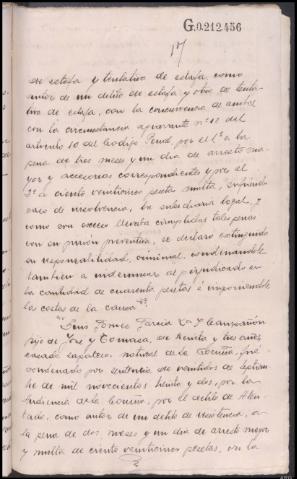 G.0.212456
17
de estafa y tentativa de estafa, como
autor de un delito de estafa y otro de tenta-
tiva de estafa, con la concurrencia de ambos
con la circunstancia agravante nº 17 del
artículo 10 del Código Penal, por el 1º a la
pena de tres meses y un dia de arresto ma-
yor y accesorias correspondientes y por el
2º a ciento veinticinco pesetas multa, sufriendo
caso de insolvencia, la subsidiaria legal, y
como con exceso llevaba cumplidas tales penas
con su prision preventiva, se declaro extinguida
su responsabilidad, criminal, condenandole
tambien a indemnizar al perjudicado en
la cantidad de cuarenta pesetas é imponiendole
las costas de la causa
Luis Gomez Garcia
hijo de Jose y Tomasa, de treinta y tres años,
casado zapatero, natural de la Coruña, fué
condenado por sentencia de veintidos de Septiem-
bre de mil novecientos treinta y dos, por la
Audiencia de la Coruña, por el delito de Aten-
tado, como autor de un delito de resistencia, a
la pena de dos meses y un dia de arresto mayor
y multa de ciento veinticinco pesetas, con la